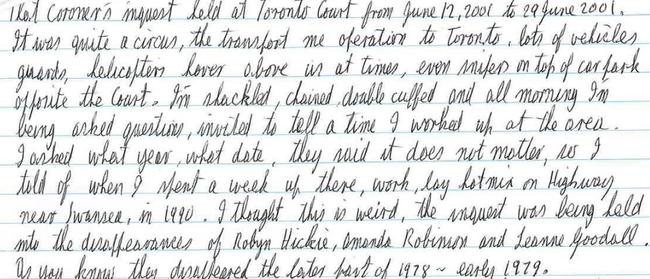 that Coroner's inquest held at Toronto Court from June 12, 2001 to 29 June 2001.
It was quite a circus, the transport me operation to Toronto, lots of vehicles
guards, helicopters hover above us at times, even snipers on top of car park
opposite the Court. I'm shackled, chained, double cuffed and all morning I'm
being asked questions, invited to tell a time I worked up at the area.
I asked what year, what date, they said it does not matter, so I
told of when I spent a week up there, work, lay hotmix on Highway
near Swansea, in 1990. I thought this is weird, the inquest was being held
into the disappearances of Robyn Hickie, Amanda Robinson and Leanne Goodall.
As you know they disappeared the later part of 1978 ~ early 1979.